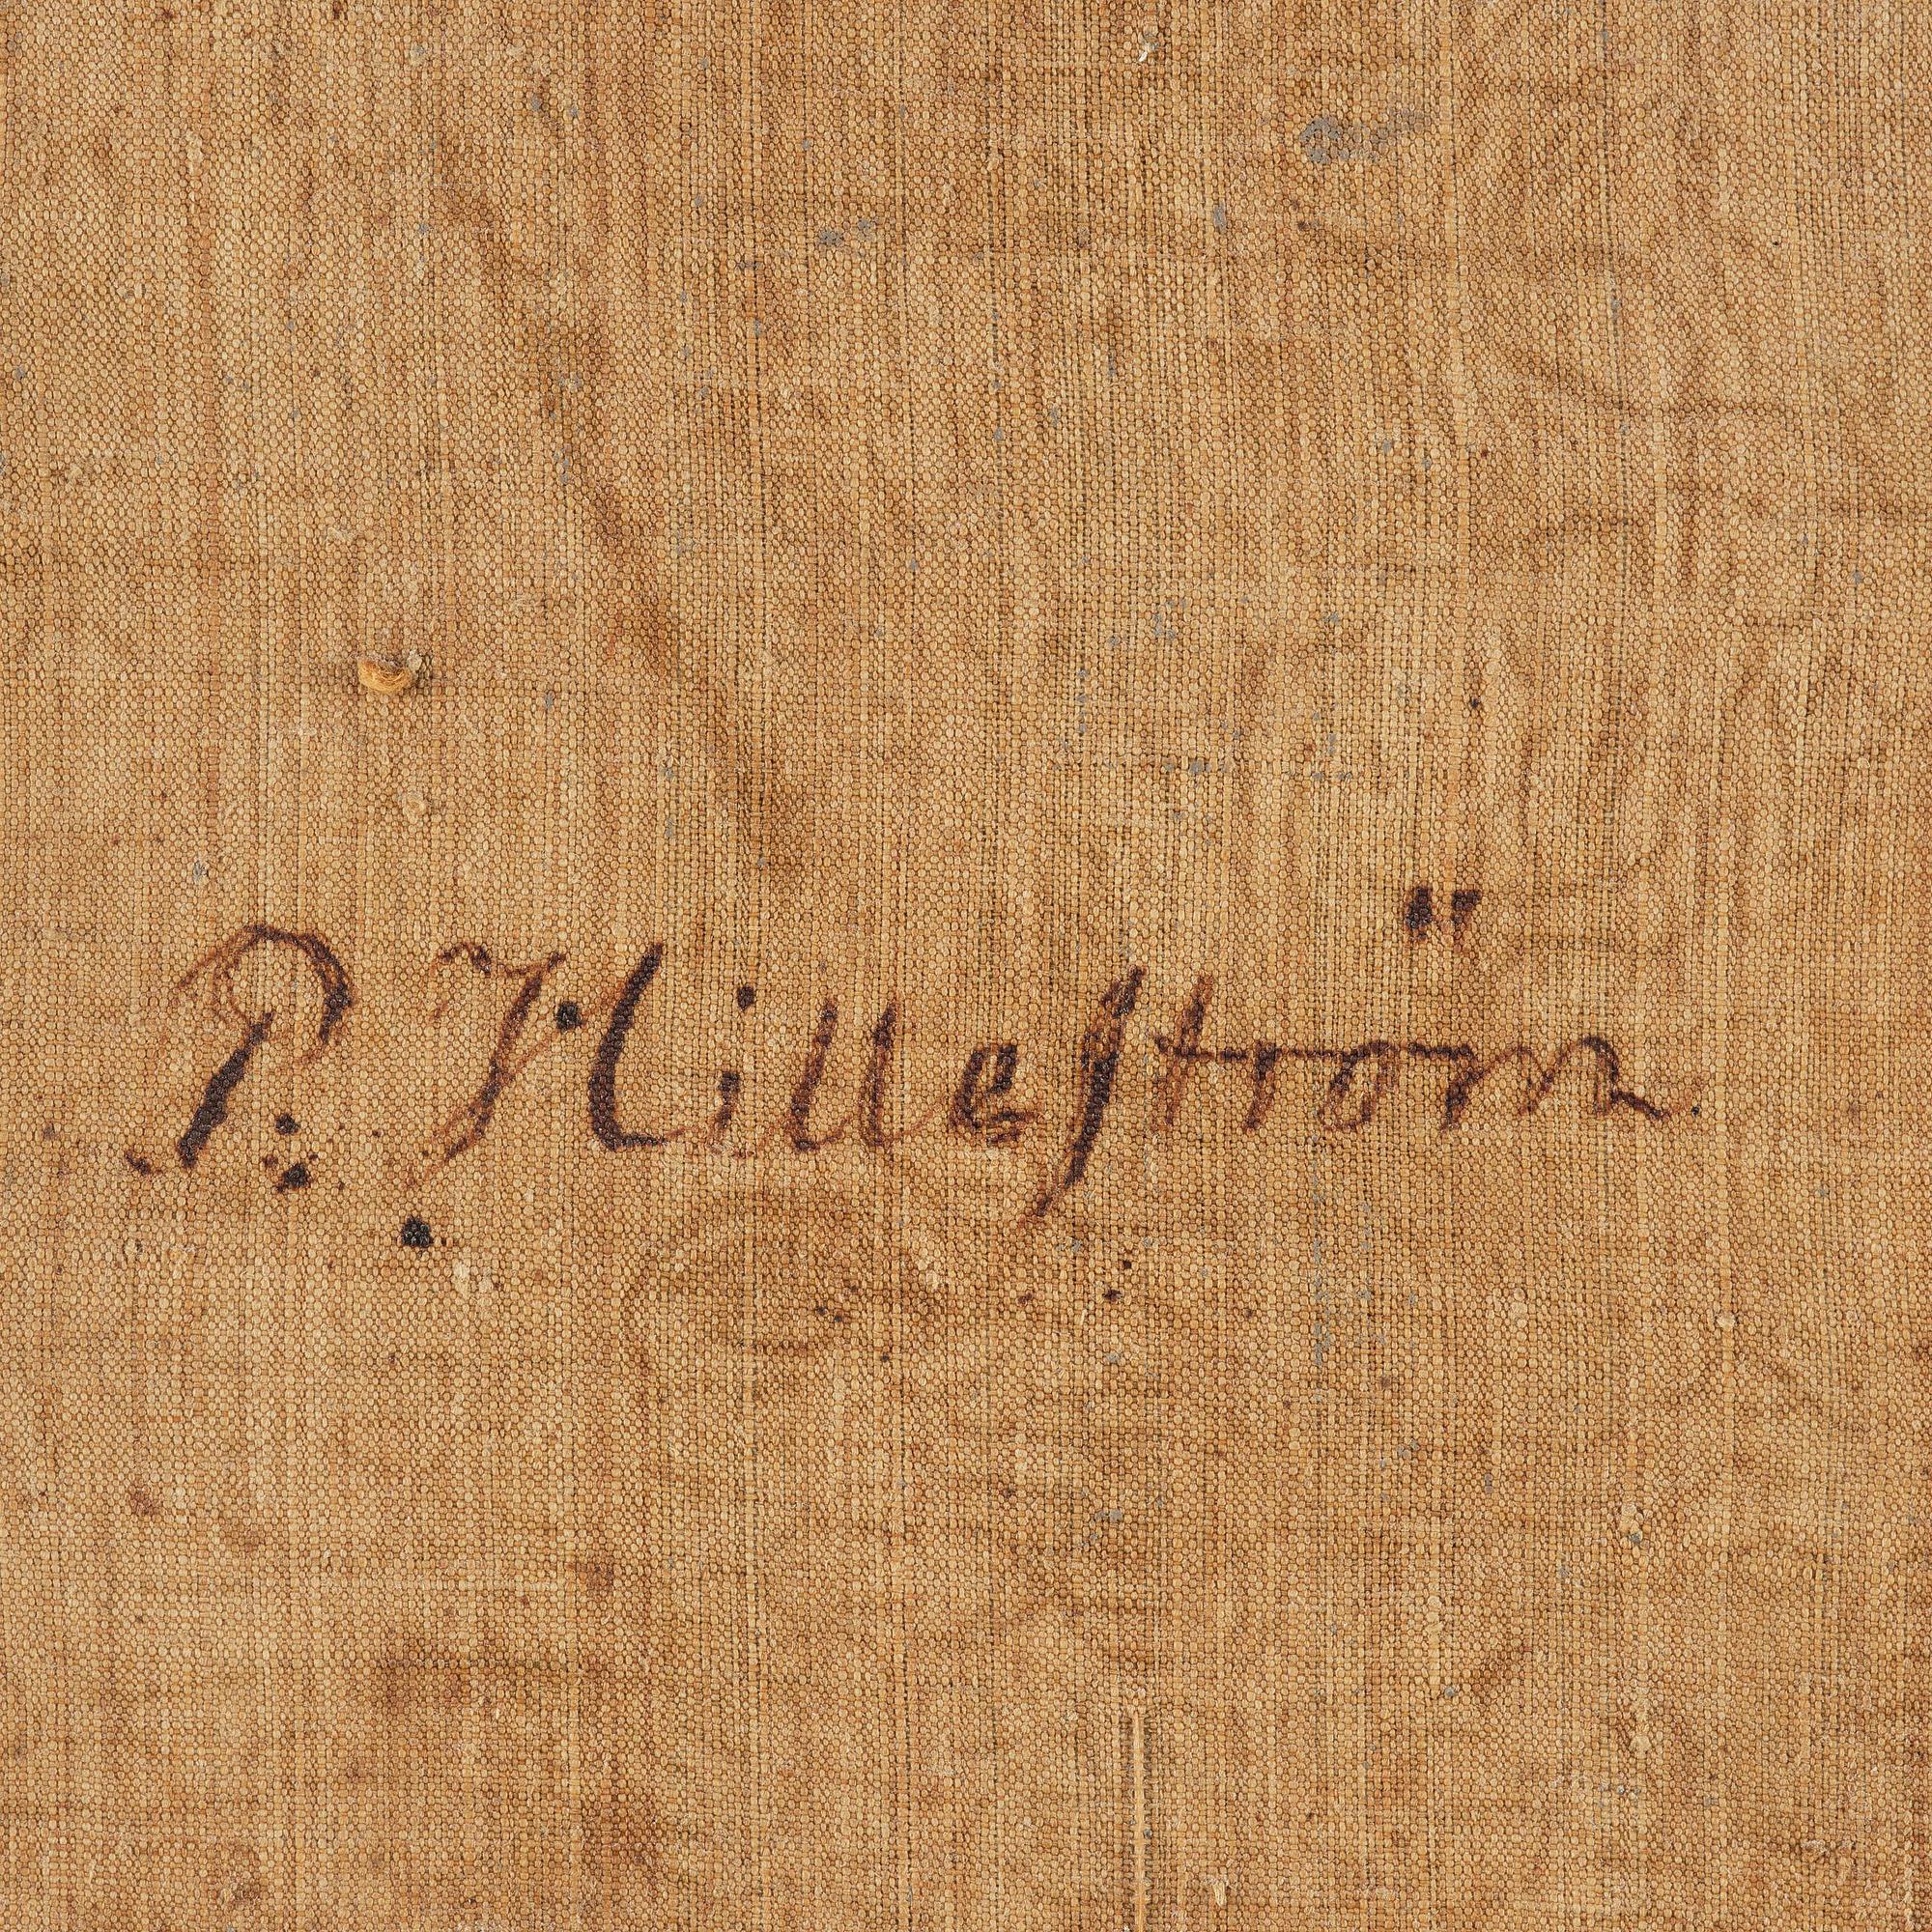 P. Hilleström